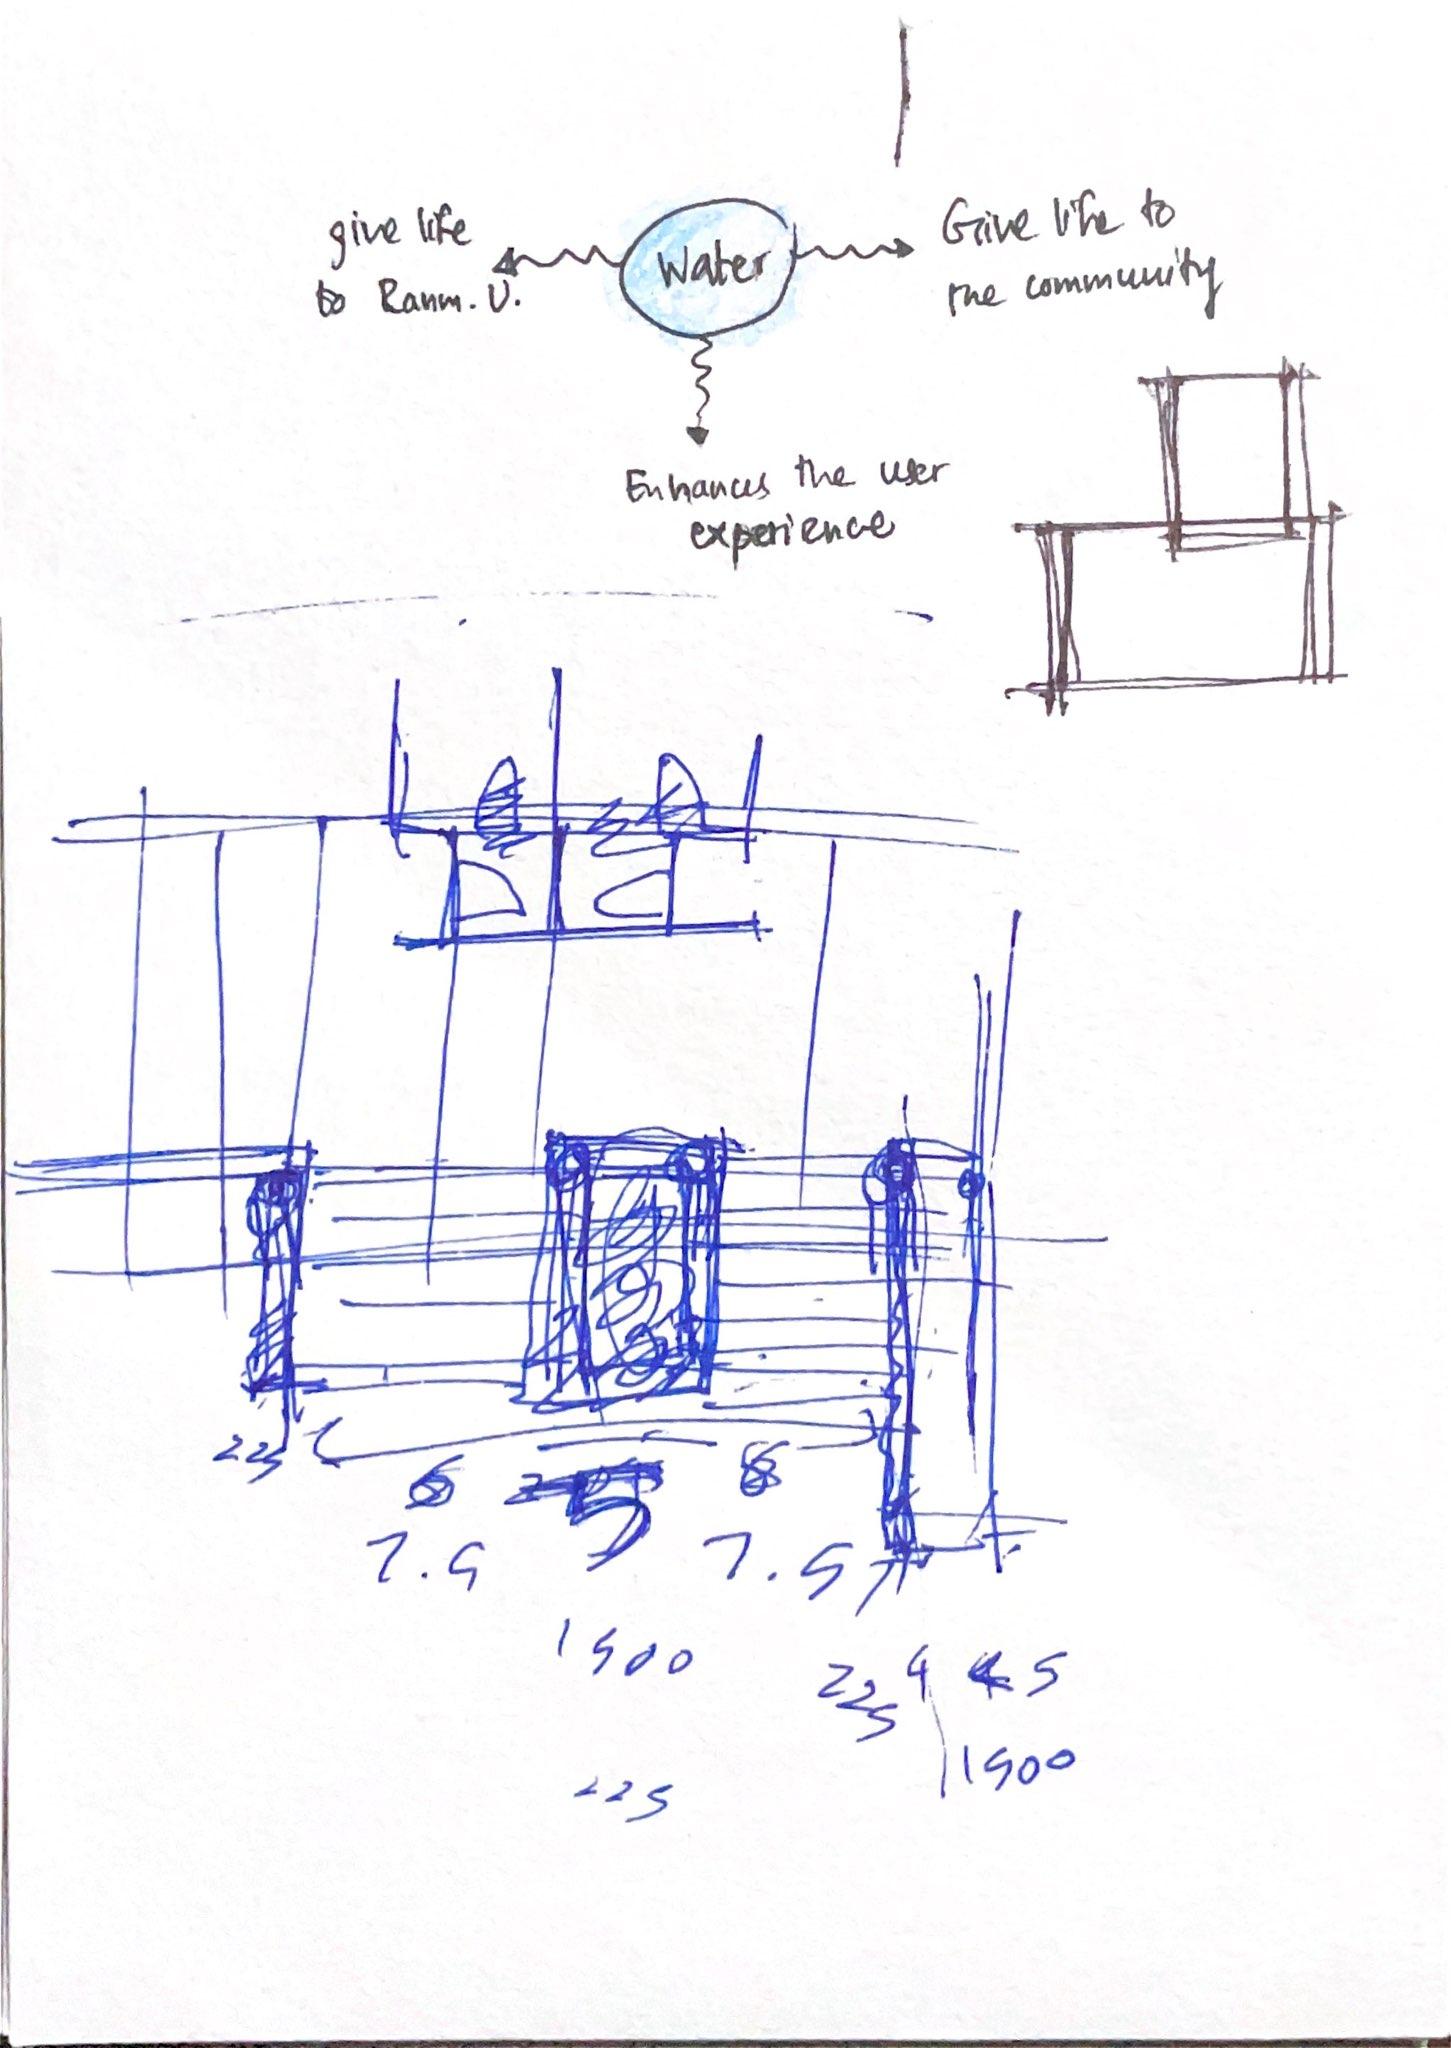 give life
to Ranm. U.
Water
Give life to
the community
Enhances the user
experience
225
7.5
7.5
1500
225
4
5
1500
225